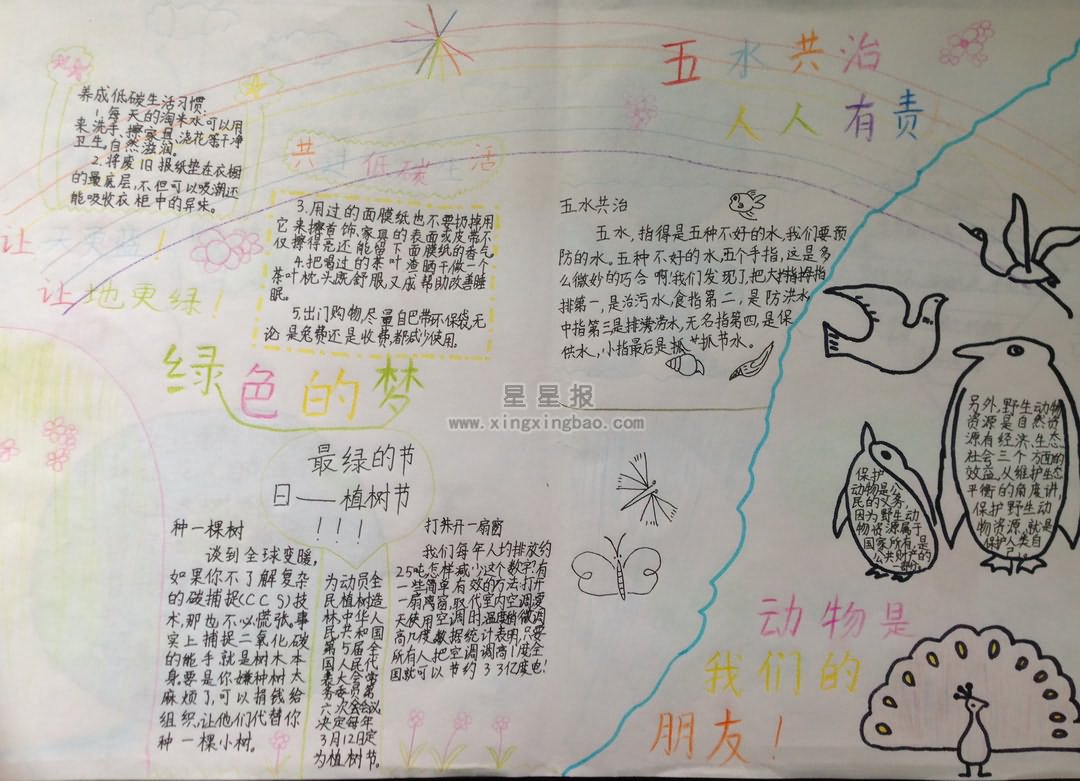 五水共治
人人有责
养成低碳生活习惯:
1.每天的淘米水可以用
来洗手、擦家具、浇花等干净
卫生,自然滋润。
2.将废旧报纸垫在衣橱
的最底层,不但可以吸潮还
能吸收衣柜中的异味。
共进低碳生活
3.用过的面膜纸也不要扔掉用
它来擦首饰、家具的表面或皮带不
仅擦得亮还能留下面膜纸的香气。
4.把喝过的茶叶渣晒干做一个
茶叶枕头既舒服,又成帮助改善睡
眠。
5.出门购物,尽量自巴带环保袋,无
论是免费还是收费,都减少使用。
让天更蓝!
让地更绿!
绿色的梦
五水共治
五水,指得是五种不好的水,我们要预
防的水。五种不好的水,五个手指,这是多
么微妙的巧合啊!我们发现了,把大拇指
排第一,是治污水,食指第二,是防洪水,
中指第三是排涝水,无名指第四,是保
供水,小指最后是抓节水。
星星报
www.xingxingbao.com
最绿的节
日——植树节
!!!
种一棵树
谈到全球变暖,
如果你不了解复杂
的碳捕捉(CCS)技
术,那也不必慌张。事
实上捕捉二氧化碳
的能手就是树木本
身要是你嫌种树太
麻烦了,可以捐钱给
组织,让他们代替你
种一棵小树。
为动员全
民植树造
林,中华人
民共和国
第5届全
国人民代
表大会常
务委员第
六次会会议
决定每年
3月12日定
为植树节。
打开一扇窗
我们每年人均排放约
2.5吨,怎样减少这个数字?有
一些简单有效的方法:打开
一扇窗,取代室内空调;夏
天使用空调时,温度稍微调
高几度,数据统计表明,只要
所有人把空调调高1度,全
国就可以节约33亿度电!
保护
动物是公
民的义务,
因为野生动
物资源属于
国家所有,是
公共财产的
一部分。
另外,野生动物
资源是自然资
源有经济、生态、
社会三个方面的
效益,从维护生态
平衡的角度讲,
保护野生动
物资源,就是
保护人类自
己。
动物是
我们的
朋友!